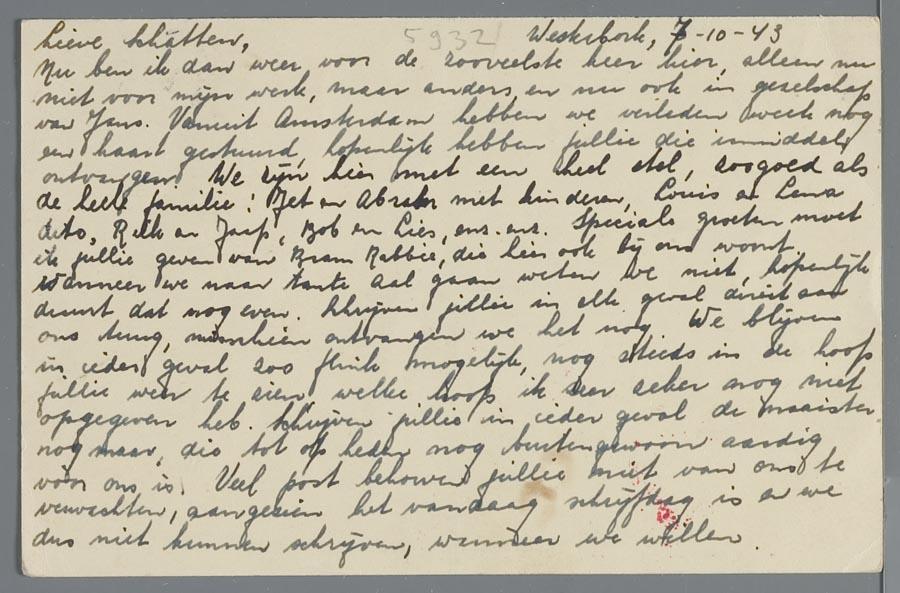 Lieve schatten, 5932 Westerbork, 7-10-43
Nu ben ik dan weer voor de zooveelste keer hier, alleen nu
niet voor mijn werk, maar anders en nu ook in gezelschap
van Jans. Vanuit Amsterdam hebben we verleden week nog
een kaart gestuurd, hopenlijk hebben jullie die inmiddels
ontvangen. We zijn hier met een heel stel, zoogoed als
de heele familie: Jet en Abraham met kinderen, Louis en Lena
dito, Riek en Jaap, Bob en Lies, enz. enz. Speciale groeten moet
ik jullie geven van Bram Rabbie, die hier ook bij ons woont.
Wanneer we naar tante Aal gaan weten we niet, hopenlijk
duurt dat nog even. Schrijven jullie in elk geval direct aan
ons terug, misschien ontvangen we het nog. We blijven
in ieder geval zoo flink mogelijk, nog steeds in de hoop
jullie weer te zien, welke hoop ik zeer zeker nog niet
opgegeven heb. Schrijven jullie in ieder geval de maaister
nog maar, die tot op heden nog buitengewoon aardig
voor ons is. Veel post behoeven jullie niet van ons te
verwachten, aangezien het vandaag schrijfdag is en we
dus niet kunnen schrijven, wanneer we willen.